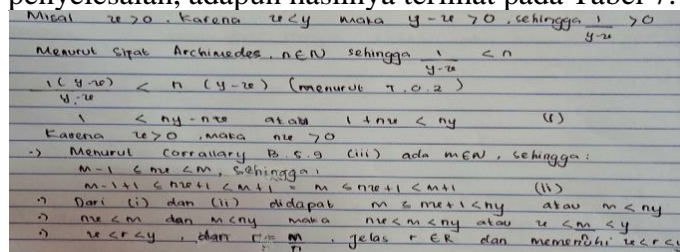 penyelesaian, adapun hasilnya terlihat pada Tabel 7.
Misal x > 0 . Karena x < y maka y - x > 0 , sehingga 1/(y-x) > 0
Menurut sifat Archimedes, n ∈ N sehingga 1/(y-x) < n
1(y-x)/(y-x) < n (y-x) (menurut 7.0.2)
1 < ny - nx atau 1 + nx < ny (i)
Karena x > 0 , maka nx > 0
-) Menurut Corrallary B.5.9 (iii) ada m ∈ N , sehingga :
m-1 ≤ nx < m, sehingga :
m-1+1 ≤ nx+1 < m+1 = m ≤ nx+1 < m+1 (ii)
-) Dari (i) dan (ii) didapat m ≤ nx+1 < ny atau m < ny
-) nx < m dan m < ny maka nx < m < ny atau x < m/n < y
-) x < r < y , dan r = m/n . jelas r ∈ R dan memenuhi x < r < y